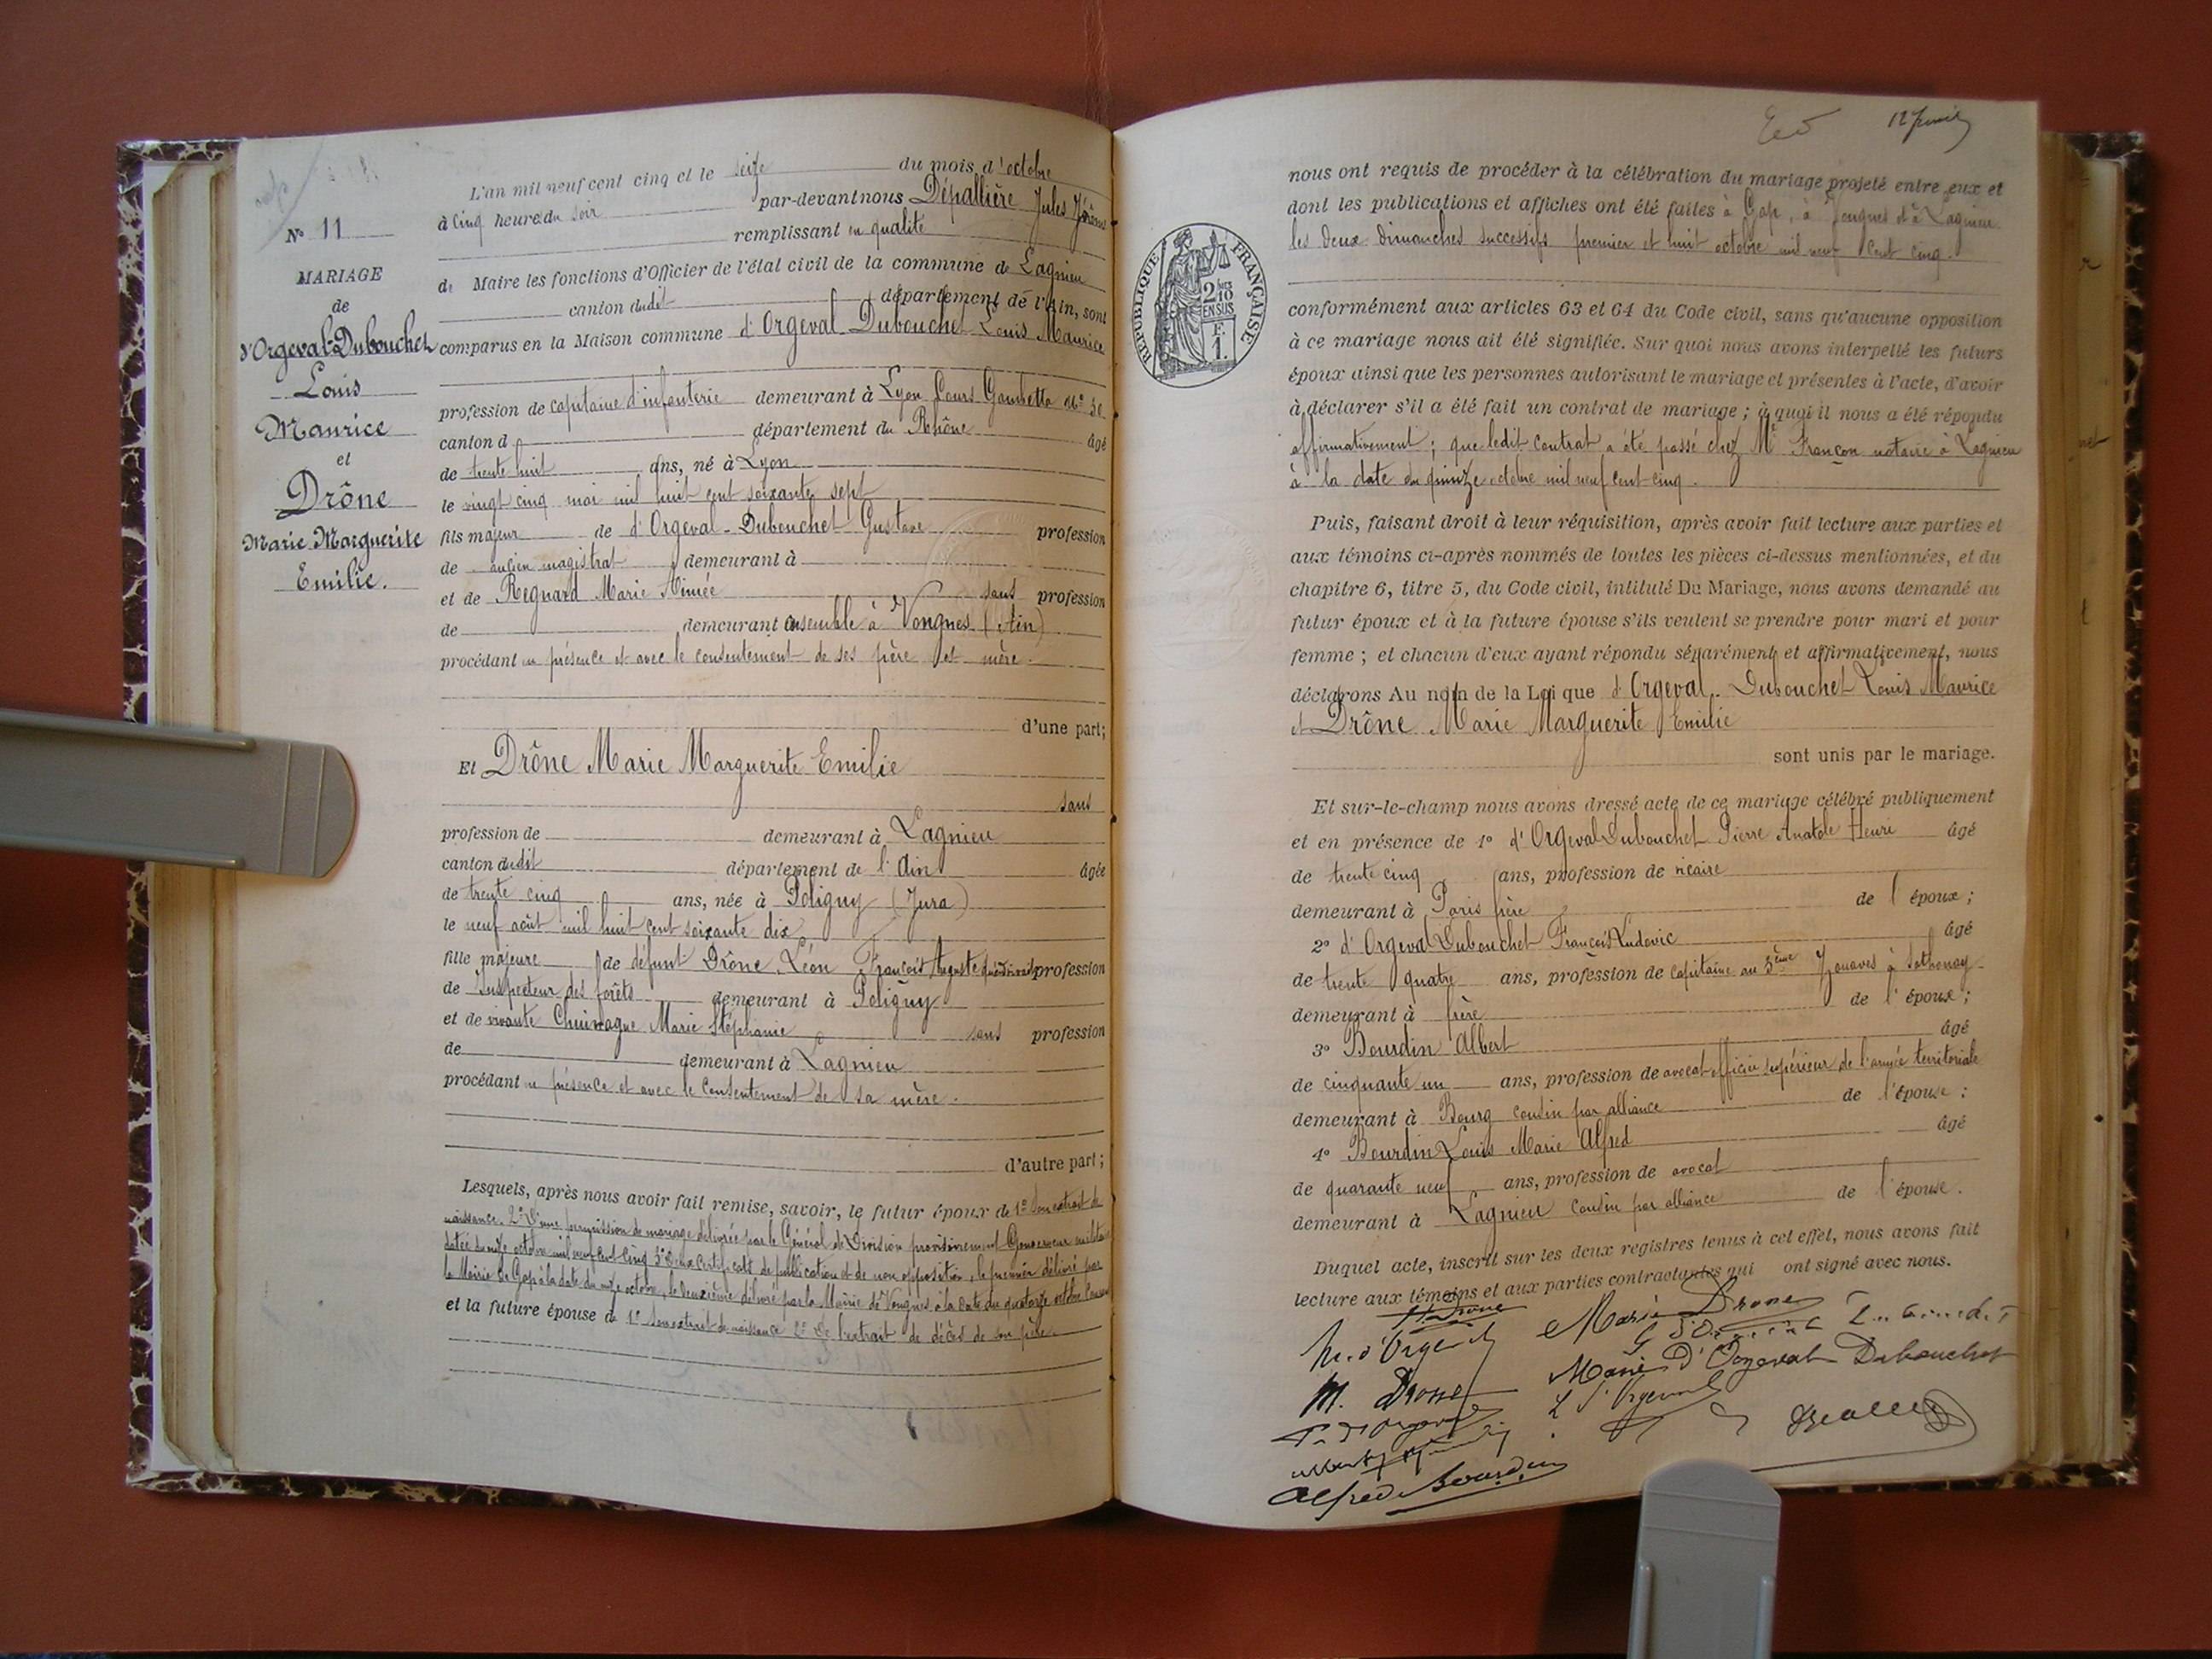 L'an mil neuf cent cinq et le seize du mois d'octobre
à cinq heure du soir par-devant nous Dépallière Jules Jérôme
remplissant en qualité
de Maire les fonctions d'Officier de l'état civil de la commune de Lagnieu
canton dudit département de l'Ain, sont
comparus en la Maison commune d'Orgeval-Dubouchet Louis Maurice
profession de capitaine d'infanterie demeurant à Lyon Cours Gambetta N°
canton d département du Rhône âgé
de trente huit ans, né à Lyon
le vingt cinq mai mil huit cent soixante sept
fils majeur de d'Orgeval-Dubouchet Gustave profession
de ancien magistrat demeurant à
et de Regnard Marie Aimée sans profession
de demeurant ensemble à Vongnes (Ain)
procédant en présence et avec le consentement de ses père et mère.
d'une part;
Et Drône Marie Marguerite Emilie
sans
profession de demeurant à Lagnieu
canton dudit département de l'Ain âgée
de trente cinq ans, née à Poligny (Jura)
le neuf août mil huit cent soixante dix
fille majeure de défunt Drône Léon François Auguste profession
de Inspecteur des forêts demeurant à Poligny
et de vivante Marie Stéphanie sans profession
de demeurant à Lagnieu
procédant en présence et avec le consentement de sa mère.
d'autre part;
Lesquels, après nous avoir fait remise, savoir, le futur époux de 1° Son extrait de
naissance. 2° D'une permission de mariage délivrée par le Général de Division provisoirement Gouverneur militaire
datée du onze octobre mil neuf cent cinq 3° Deux certificats de publication et de non opposition, le premier délivré par
la Mairie de Gap à la date du onze octobre, le deuxième délivré par la Mairie de Vongnes à la date du quatorze octobre
et la future épouse de 1° Son extrait de naissance 2° De l'extrait de décès de son père.
N° 11
MARIAGE
de
d'Orgeval-Dubouchet
Louis
Maurice
et
Drône
Marie Marguerite
Emilie.
RÉPUBLIQUE FRANÇAISE
2/10 EN SUS
F. 1.
nous ont requis de procéder à la célébration du mariage projeté entre eux et
dont les publications et affiches ont été faites à Gap, à Vongnes et à Lagnieu
les deux dimanches successifs premier et huit octobre mil neuf cent cinq.
conformément aux articles 63 et 64 du Code civil, sans qu'aucune opposition
à ce mariage nous ait été signifiée. Sur quoi nous avons interpellé les futurs
époux ainsi que les personnes autorisant le mariage et présentes à l'acte, d'avoir
à déclarer s'il a été fait un contrat de mariage; à quoi il nous a été répondu
affirmativement; que ledit contrat a été passé chez Me Françon notaire à Lagnieu
à la date du quinze octobre mil neuf cent cinq.
Puis, faisant droit à leur réquisition, après avoir fait lecture aux parties et
aux témoins ci-après nommés de toutes les pièces ci-dessus mentionnées, et du
chapitre 6, titre 5, du Code civil, intitulé Du Mariage, nous avons demandé au
futur époux et à la future épouse s'ils veulent se prendre pour mari et pour
femme; et chacun d'eux ayant répondu séparément et affirmativement, nous
déclarons Au nom de la Loi que d'Orgeval-Dubouchet Louis Maurice
et Drône Marie Marguerite Emilie
sont unis par le mariage.
Et sur-le-champ nous avons dressé acte de ce mariage célébré publiquement
et en présence de 1° d'Orgeval Dubouchet Pierre Anatole Henri âgé
de trente cinq ans, profession de vicaire
demeurant à Paris frère de l'époux;
2° d'Orgeval Dubouchet François Ludovic âgé
de trente quatre ans, profession de capitaine au 3ème Zouaves à Sathonay
demeurant à frère de l'époux;
3° Bourdin Albert âgé
de cinquante un ans, profession de avocat officier supérieur de l'armée territoriale
demeurant à Bourg cousin par alliance de l'épouse;
4° Bourdin Louis Marie Alfred âgé
de quarante neuf ans, profession de avocat
demeurant à Lagnieu cousin par alliance de l'épouse.
Duquel acte, inscrit sur les deux registres tenus à cet effet, nous avons fait
lecture aux témoins et aux parties contractantes qui ont signé avec nous.
Marie Drone
M. d'Orgeval
Marie D'Orgeval Dubouchet
M. Drone
L d'Orgeval
Alfred Bourdin